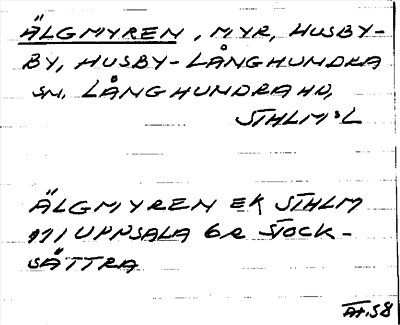 ÄLGMYREN, MYR, HUSBY-
BY, HUSBY-LÅNGHUNDRA
SN. LÅNGHUNDRA HD,
STHLM:S L
ÄLGMYREN EK STHLM
111 UPPSALA 6R STOCK-
SÄTTRA
ÄH.58